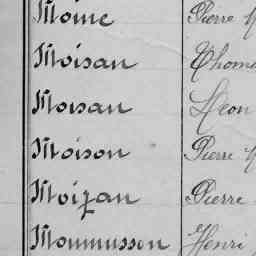 Moine Pierre
Moisan Thom
Moisan Léon
Moison Pierre
Moizan Pierre
Monmusson Henri